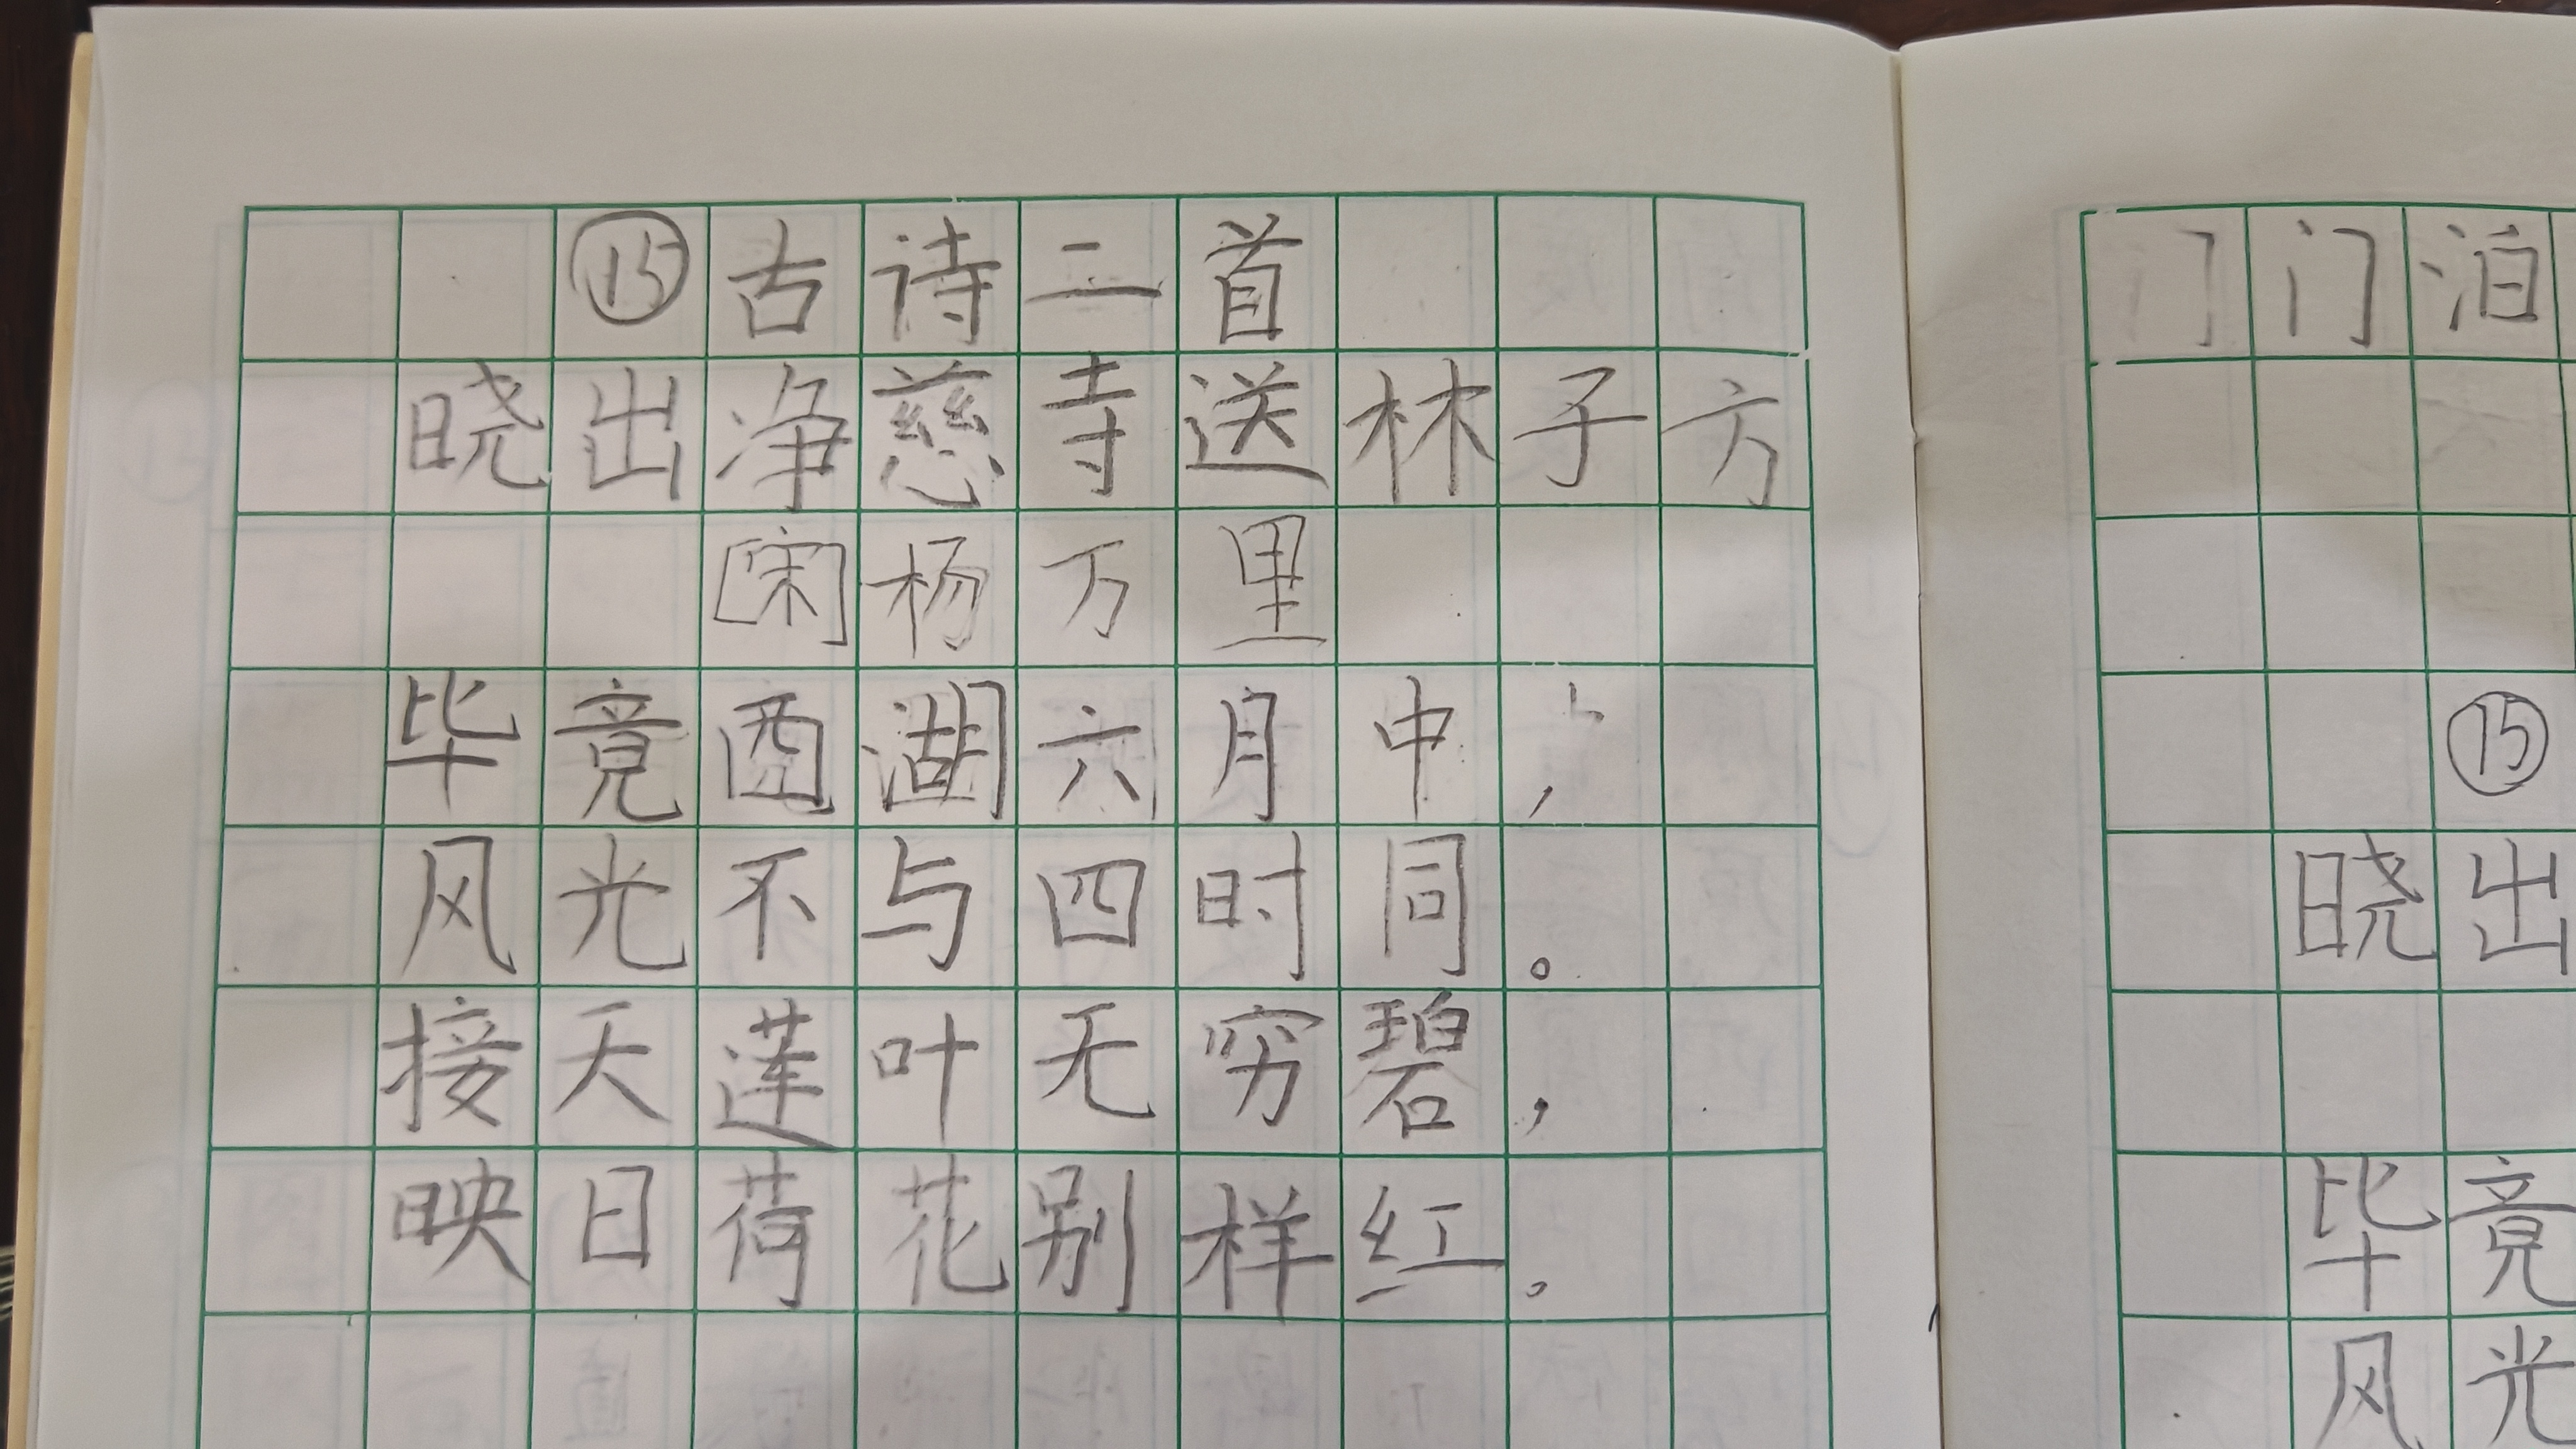 ⑮古诗二首
晓出净慈寺送林子方
[宋]杨万里
毕竟西湖六月中，
风光不与四时同。
接天莲叶无穷碧，
映日荷花别样红。
门泊
⑮
晓出
毕竟
风光